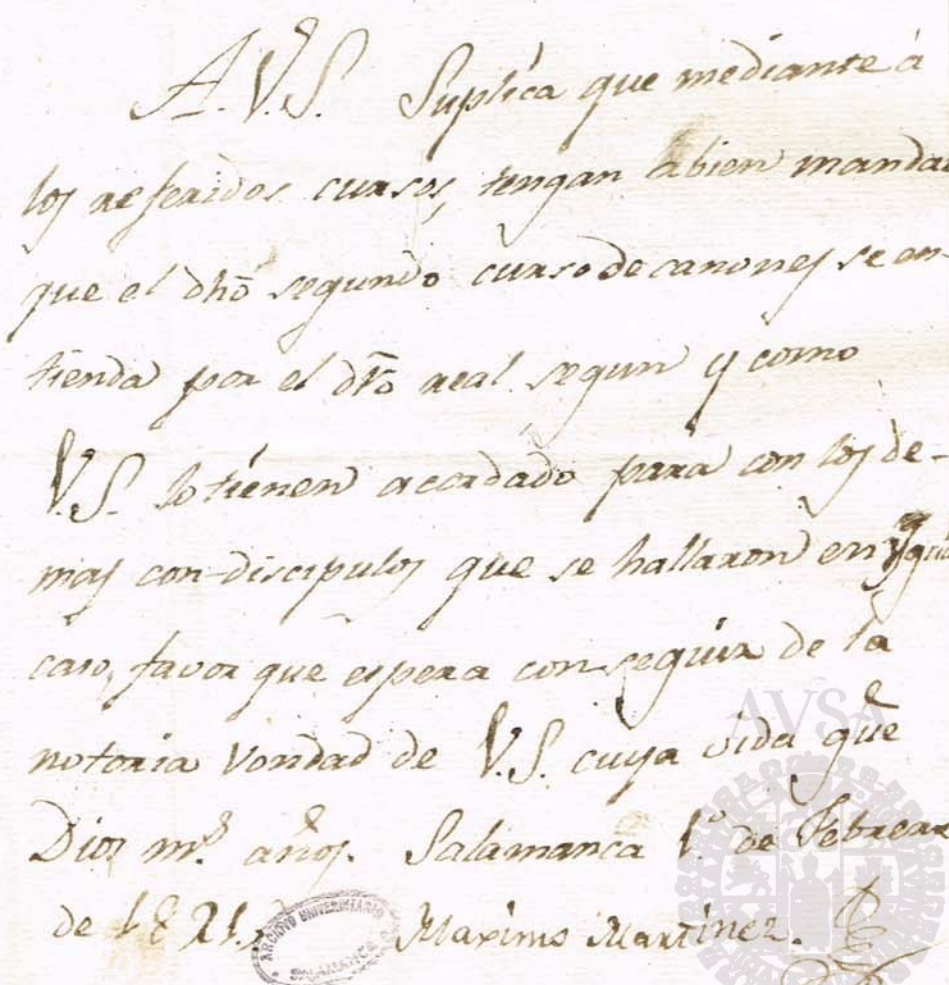 A.V.S. Suplica que mediante á
los referidos cursos, tengan abien mandar
que el dhō segundo curso de canones se en-
tienda por el drō real segun y como
V.S. lo tienen acordado para con los de-
mas con-discipulos que se hallaron en ygual
caso, favor que espera conseguir de la
notoria vondad de V.S. cuya vida gūe
Dios ms. años. Salamanca 1º de Febrero
de 1821.
Maximo Martinez.
ARCHIVO UNIVERSITARIO
SALAMANCA
AVSA